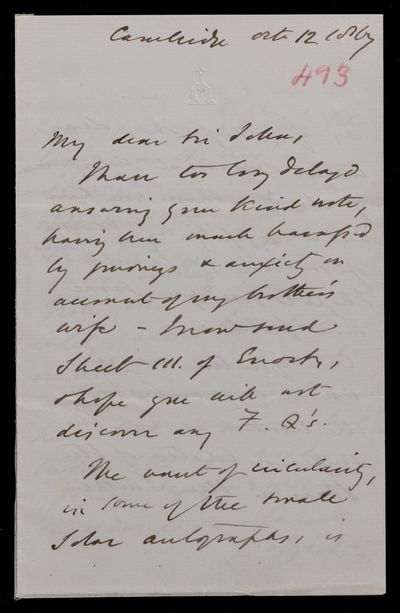 Cambridge Octr 12 1867
493
My dear Sir John,
I have too long delayd
answering your kind note,
having been much harassd
by journeys & anxiety on
account of my brother's
wife – I now send
Sheet III. of Enoch,
& hope you will not
discover any F. Q's.
The want of circularity,
in some of the small
Solar autographs, is